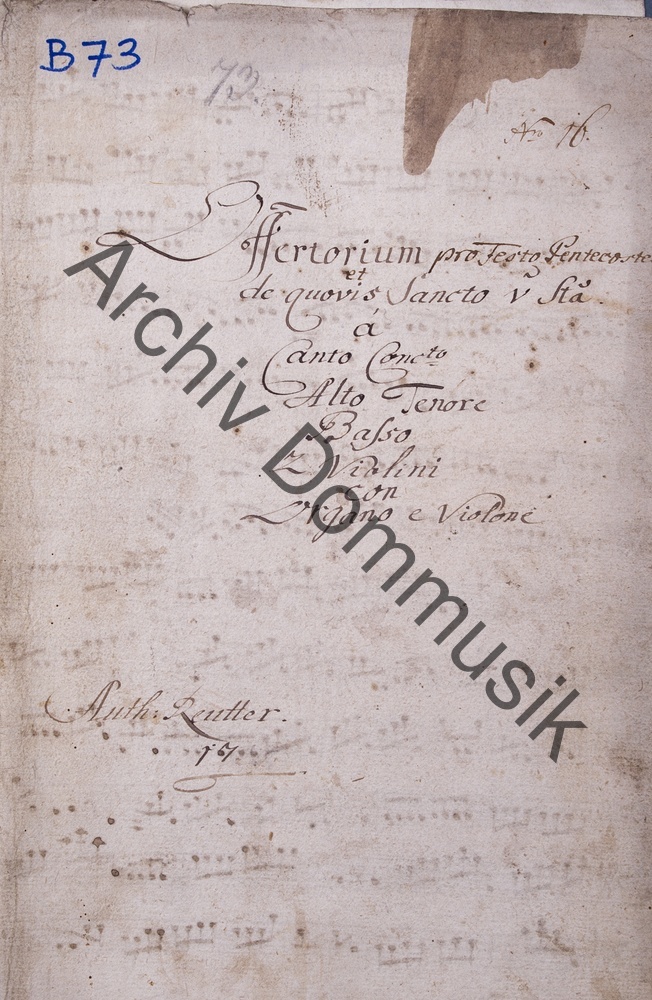 B73
73.
Nro 16.
Offertorium pro Festo Pentecoste
et
de quovis Sancto v Sta.
á
Canto Conc:to
Alto Tenore
Basso
2 Violini
con
Organo e Violone
Auth: Reutter.
17
Archiv Dommusik